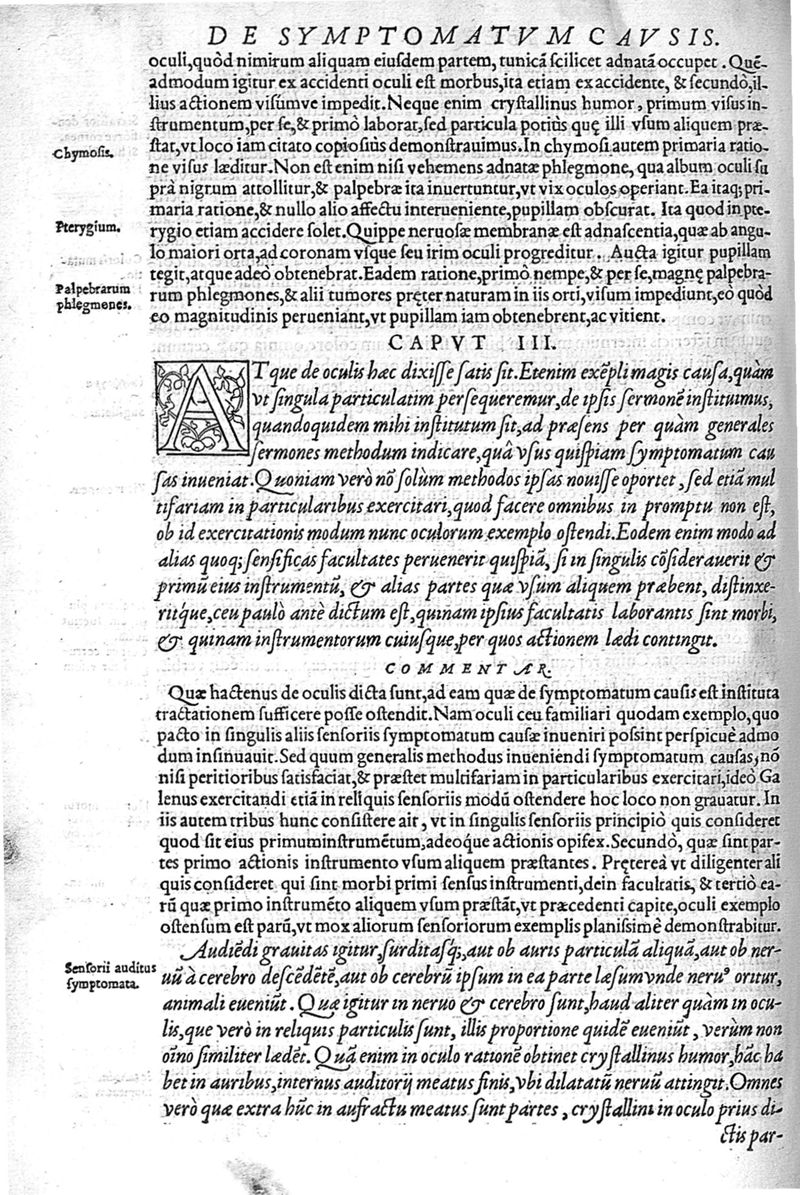 DE SYMPTOMATVM CAVSIS.
oculi,quòd nimirum aliquam eiusdem partem, tunicã scilicet adnatã occupet. Quẽ-
admodum igitur ex accidenti oculi est morbus,ita etiam ex accidente, & secundò,il-
lius actionem visúmve impedit. Neque enim crystallinus humor, primum visus in-
strumentum,per se,& primò laborat,sed particula potiùs quę illi vsum aliquem præ-
stat,vt loco iam citato copiosiùs demonstrauimus. In chymosi autem primaria ratio-
Chymosis.
ne visus læditur. Non est enim nisi vehemens adnatæ phlegmone, qua album oculi su
prà nigrum attollitur,& palpebræ ita inuertuntur,vt vix oculos operiant. Ea itaq; pri-
maria ratione,& nullo alio affectu interueniente,pupillam obscurat. Ita quod in pte-
Pterygium.
rygio etiam accidere solet. Quippe neruosæ membranæ est adnascentia,quæ ab angu
lo maiori orta,ad coronam vsque seu irim oculi progreditur. Aucta igitur pupillam
tegit,atque adeò obtenebrat. Eadem ratione,primò nempe,& per se,magnę palpebra-
Palpebrarum
phlegmones.
rum phlegmones,& alii tumores pręter naturam in iis orti,visum impediunt,eò quòd
eo magnitudinis perueniant,vt pupillam iam obtenebrent,ac vitient.
CAPVT III.
ATque de oculis hæc dixisse satis sit. Etenim exẽpli magis causa,quàm
vt singula particulatim persequeremur,de ipsis sermonẽ instituimus,
quandoquidem mihi institutum sit,ad præsens per quàm generales
sermones methodum indicare,quâ vsus quispiam symptomatum cau
sas inueniat. Quoniam verò nõ solùm methodos ipsas nouisse oportet, sed etiã mul
tifariam in particularibus exercitari,quod facere omnibus in promptu non est,
ob id exercitationis modum nunc oculorum exemplo ostendi. Eodem enim modo ad
alias quoq; sensificas facultates peruenerit quispiã, si in singulis cõsiderauerit &
primũ eius instrumentũ, & alias partes quæ vsum aliquem præbent, distinxe-
rítque,ceu paulò antè dictum est,quinam ipsius facultatis laborantis sint morbi,
& quinam instrumentorum cuiusque,per quos actionem lædi contingit.
COMMENTAR.
Quæ hactenus de oculis dicta sunt,ad eam quæ de symptomatum causis est instituta
tractationem sufficere posse ostendit. Nam oculi ceu familiari quodam exemplo,quo
pacto in singulis aliis sensoriis symptomatum causæ inueniri possint perspicuè admo
dum insinuauit. Sed quum generalis methodus inueniendi symptomatum causas,nõ
nisi peritioribus satisfaciat,& præstet multifariam in particularibus exercitari,ideò Ga
lenus exercitandi etiã in reliquis sensoriis modũ ostendere hoc loco non grauatur. In
iis autem tribus hunc consistere ait, vt in singulis sensoriis principiò quis consideret
quod sit eius primum instrumẽtum,adeóque actionis opifex. Secundò, quæ sint par-
tes primo actionis instrumento vsum aliquem præstantes. Pręterea vt diligenter ali
quis consideret qui sint morbi primi sensus instrumenti,dein facultatis, & tertiò ea-
rũ quæ primo instrumẽto aliquem vsum præstãt,vt præcedenti capite,oculi exemplo
ostensum est parũ,vt mox aliorum sensoriorum exemplis planissimè demonstrabitur.
Audiẽdi grauitas igitur,surditásq;,aut ob auris particulã aliquã,aut ob ner-
Sensorii auditus
symptomata.
uũ à cerebro descẽdẽtẽ,aut ob cerebrũ ipsum in ea parte læsum vnde neru⁹ oritur,
animali eueniũt. Quæ igitur in neruo & cerebro sunt,haud aliter quàm in ocu-
lis,que verò in reliquis particulis sunt, illis proportione quidẽ eueniũt, verùm non
oĩno similiter lædẽt. Quã enim in oculo rationẽ obtinet crystallinus humor,hãc ha
bet in auribus,internus auditorij meatus finis,vbi dilatatũ neruũ attingit. Omnes
verò quæ extra hũc in aufractu meatus sunt partes, crystallini in oculo prius di-
ctis par-